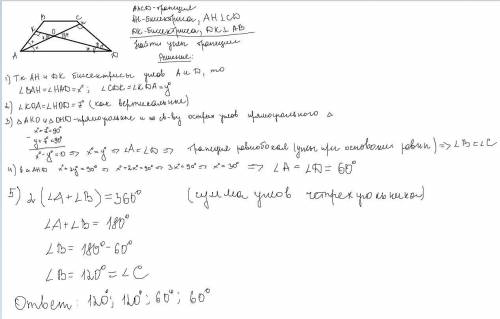 B C
K H
O
A D
ABCD-трапеция
AH-биссектриса, AH⊥CD
DK-биссектриса, DK⊥AB
Найти углы трапеции
Решение:
1) Т.к AH и DK биссектрисы углов A и D, то
∠BAH=∠HAD=x°; ∠CDK=∠KDA=y°
2) ∠KOA=∠HOD=z° (как вертикальные)
3) △AKO и △DHO-прямоугольные ⇒ по св-ву острых углов прямоугольного △
x°+z°=90°
y+z°=90°
x°-y°=0 ⇒ x°=y° ⇒ ∠A=∠D ⇒ трапеция равнобокая (углы при основании равны) ⇒ ∠B=∠C
4) В △AHD x°+2y°=90° ⇒ x°+2x°=90° ⇒ 3x°=90° ⇒ x°=30° ⇒ ∠A=∠D=60°
5) 2(∠A+∠B)=360° (сумма углов четырехугольника)
∠A+∠B=180°
∠B=180°-60°
∠B=120°=∠C
Ответ: 120°; 120°; 60°; 60°